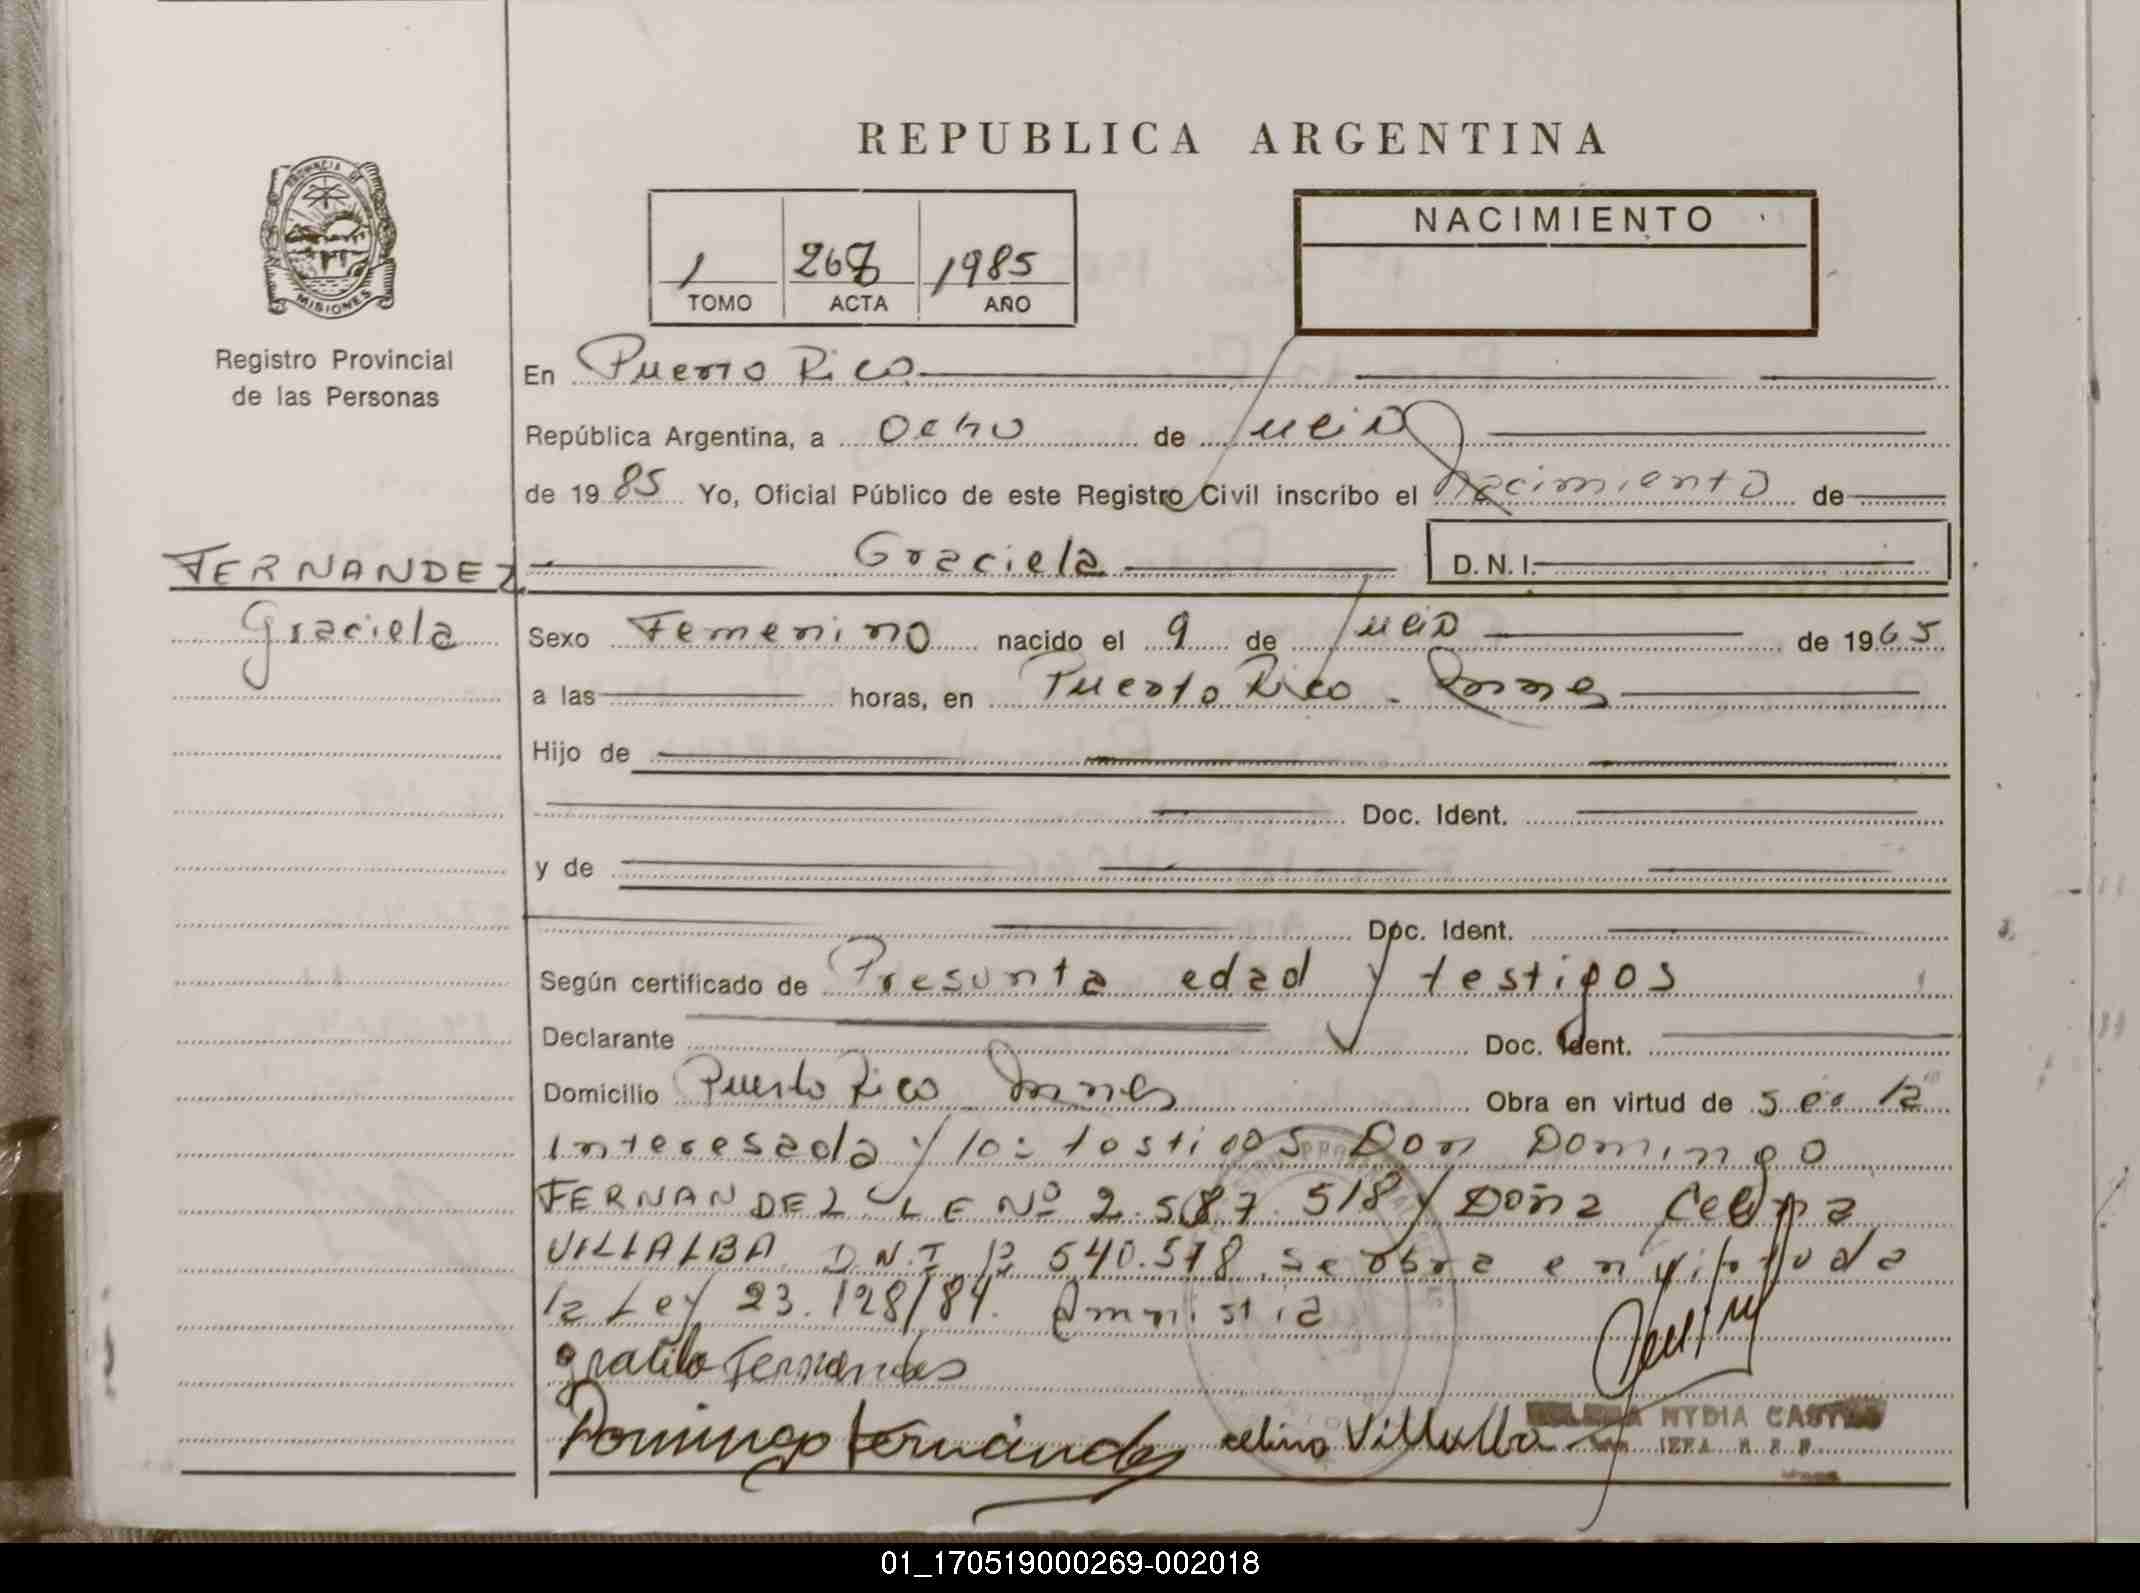 REPUBLICA ARGENTINA
PROVINCIA DE
MISIONES
Registro Provincial
de las Personas
1 268 1985
TOMO ACTA AÑO
NACIMIENTO
En Puerto Rico
República Argentina, a ocho de Julio
de 1985 Yo, Oficial Público de este Registro Civil inscribo el Nacimiento de
FERNANDEZ Graciela D. N. I.
Graciela
Sexo Femenino nacido el 9 de Julio de 1965
a las horas, en Puerto Rico - Mnes
Hijo de
Doc. Ident.
y de
Doc. Ident.
Según certificado de Presunta edad y testigos
Declarante Doc. Ident.
Domicilio Puerto Rico Mnes Obra en virtud de ser la
Interesada y los testigos Don Domingo
FERNANDEZ L E Nº 2.587.518 y Doña Celina
VILLALBA D.N.I. 540.518 se obra en virtud de
la Ley 23.128/84. Amnistia
Fernandes
Domingo Fernández celina Villalba
NYDIA CASTRO
01_170519000269-002018